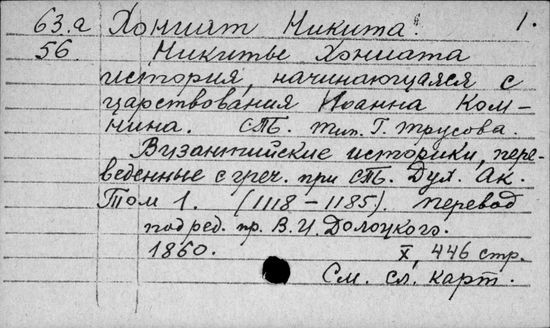 63.а Хониат Никита. 1.
56. Никиты Хониата
история, начинающаяся с
царствования Иоанна Ком-
нина. СПб. тип. Г. Трусова.
Византийские историки, пере-
веденные с греч. при СПб. Дух. Ак.
Том 1. (1118-1185). перевод
под ред. пр. В.И. Долоцкого.
1860. X, 446 стр.
См. сл. карт.